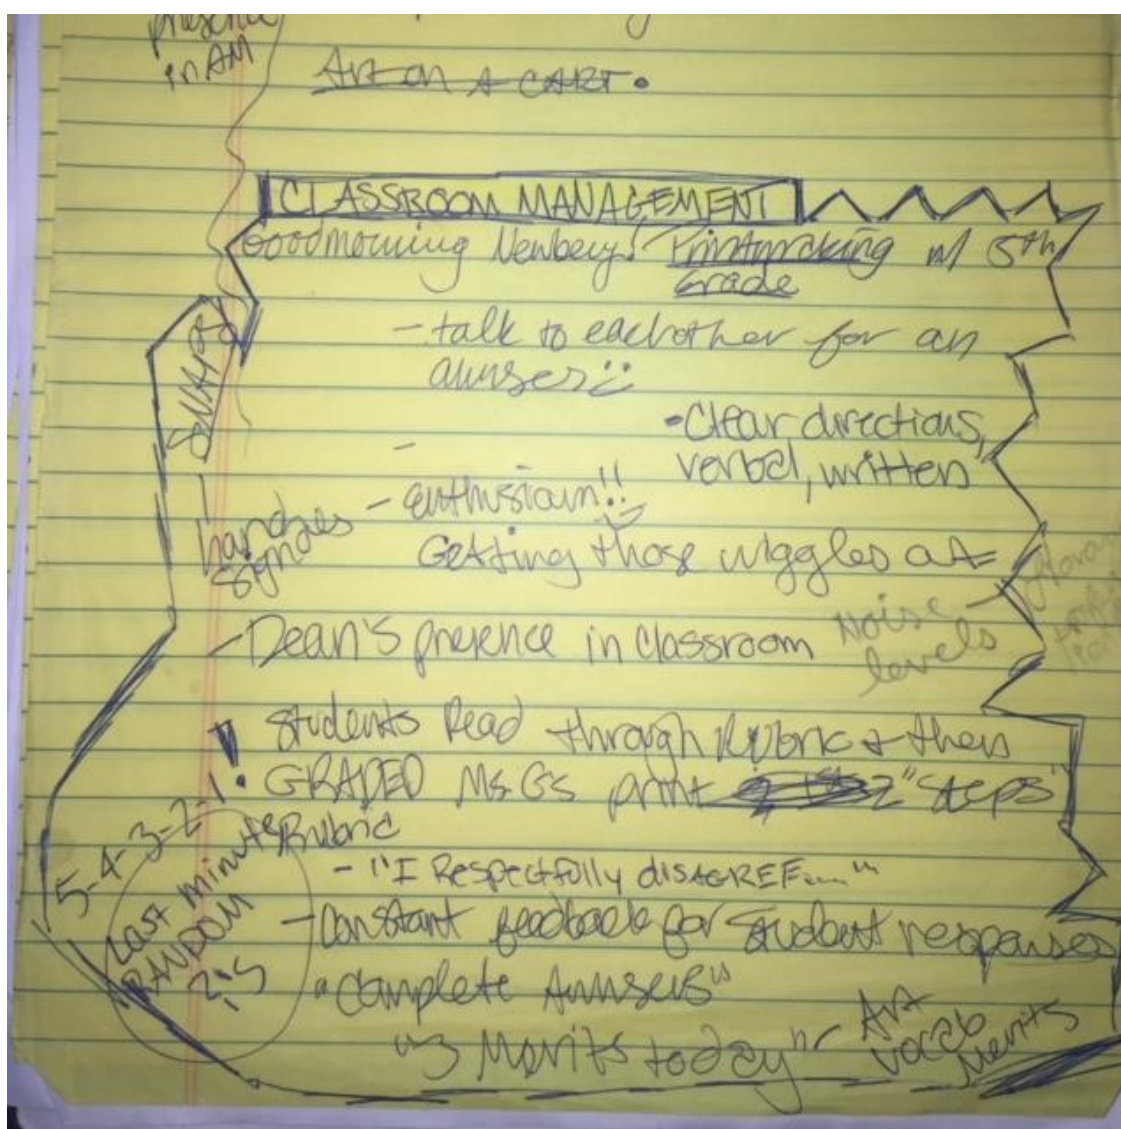 presence
in AM
Art on A CART.
CLASSROOM MANAGEMENT
Goodmorning Newbery! Printmaking w/ 5th
Grade
- talk to eachother for an
SNAPS
- Clear directions,
verbal, written
- enthusiasm!!
hand signals
Getting those wiggles out
- Dean's presence in classroom
Noise
levels
! Students Read through Rubric & then
GRADED Ms. Gs print 2 "steps"
5-4-3-2-1
Rubric
- "I Respectfully disAGREE...."
Last minute
RANDOM
?'s
- Constant feedback for student responses
"Complete Answers"
"3 Merits today" -
Art
vocab
merits